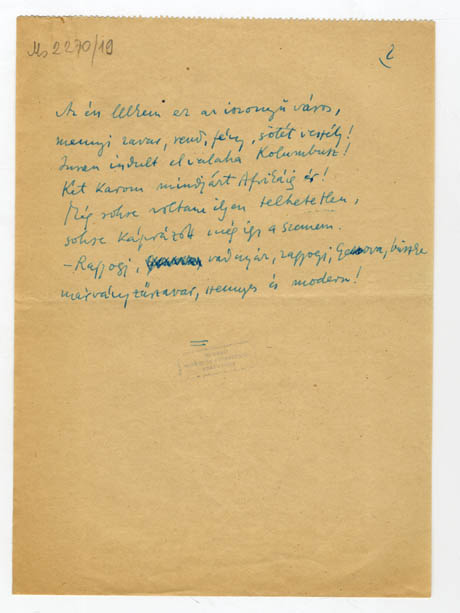 Ms 2270/19
2
Az én lelkem ez az iszonyú város,
mennyi zavar, rend, fény, sötét veszély!
Innen indult el valaha Kolumbusz!
Két karom mindjárt Afrikáig ér!
Még sohse voltam ilyen telhetetlen,
sohse káprázott még így a szemem.
–Ragyogj, vad nyár, ragyogj, Genova, büszke
márványzűrzavar, szennyes és modern!